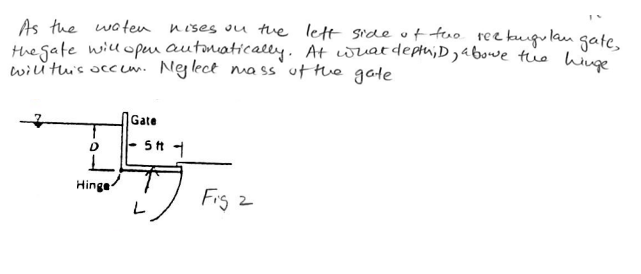 As the water rises on the left side of the rectangular gate,
the gate will open automatically. At what depth, D, above the hinge
will this occur. Neglect mass of the gate
Gate
D
5 ft
Hinge
L
Fig 2